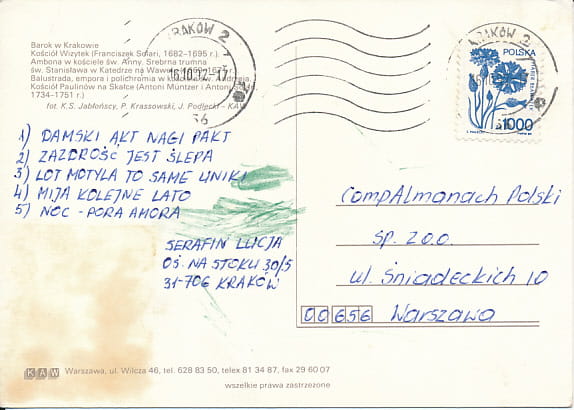 Barok w Krakowie
Kościół Wizytek (Franciszek Solari, 1682–1695 r.)
Ambona w kościele św. Anny. Srebrna trumna
św. Stanisława w Katedrze na Wawelu
Balustrada, empora i polichromia w kościele św. Andrzeja.
Kościół Paulinów na Skałce (Antoni Müntzer i Antoni Solari,
1734–1751 r.)
fot. K.S. Jabłońscy, P. Krassowski, J. Podlecki - KAW
KRAKÓW 2
16.10.92-17
36
KRAKÓW 2
POLSKA
1000
1) DAMSKI AKT NAGI PAKT
2) ZAZDROŚĆ JEST ŚLEPA
3) LOT MOTYLA TO SAME UNIKI
4) MIJA KOLEJNE LATO
5) NOC - PORA AMORA
SERAFIN LUCJA
OŚ. NA STOKU 30/5
31-706 KRAKÓW
CompAlmanach Polski
Sp. z o.o.
ul. Śniadeckich 10
00656 Warszawa
KAW Warszawa, ul. Wilcza 46, tel. 628 83 50, telex 81 34 87, fax 29 60 07
wszelkie prawa zastrzeżone